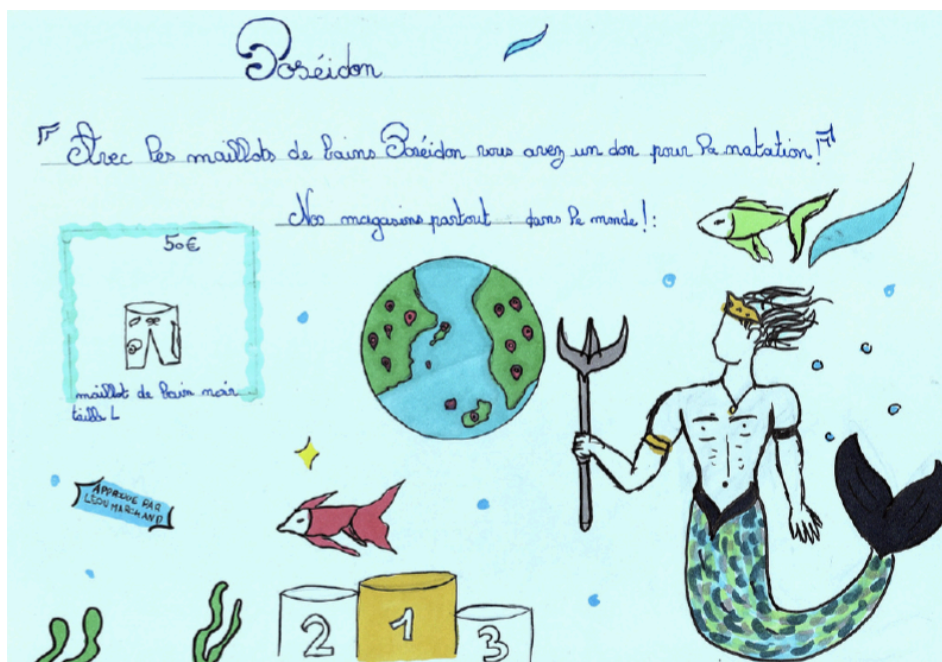 Poséidon
" Avec les maillots de bains Poséidon vous avez un don pour la natation ! "
Nos magasins partout dans le monde ! :
50€
maillot de bain noir
taille L
APPROUVÉ PAR
LÉON MARCHAND
2
1
3